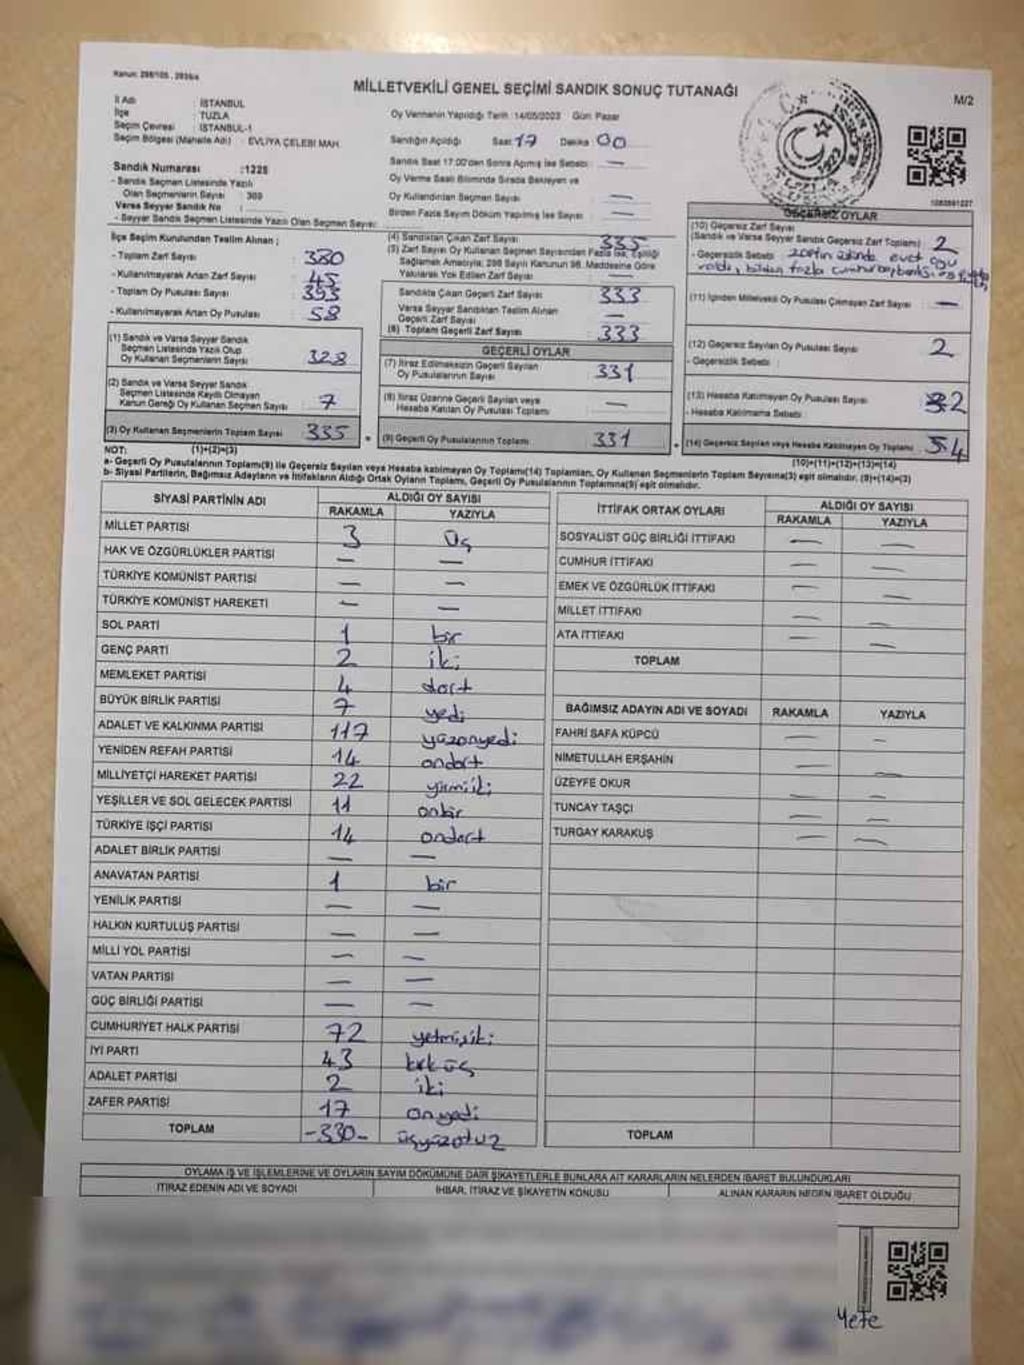 Kanun: 298/105, 2839/a
MİLLETVEKİLİ GENEL SEÇİMİ SANDIK SONUÇ TUTANAĞI
M/2
İl Adı : İSTANBUL
İlçe : TUZLA
Seçim Çevresi : İSTANBUL-1
Seçim Bölgesi (Mahalle Adı) : EVLİYA ÇELEBİ MAH.
Oy Vermenin Yapıldığı Tarih :14/05/2023 Gün: Pazar
Sandığın Açıldığı Saat: 17 Dakika 00
Sandık Saat 17:00'den Sonra Açılmış İse Sebebi : —
Oy Verme Saati Bitiminde Sırada Bekleyen ve
Oy Kullandırılan Seçmen Sayısı : —
Birden Fazla Sayım Döküm Yapılmış İse Sayısı : —
Sandık Numarası :1228
- Sandık Seçmen Listesinde Yazılı
Olan Seçmenlerin Sayısı : 369
Varsa Seyyar Sandık No :
- Seyyar Sandık Seçmen Listesinde Yazılı Olan Seçmen Sayısı:
İlçe Seçim Kurulundan Teslim Alınan ;
- Toplam Zarf Sayısı : 380
- Kullanılmayarak Artan Zarf Sayısı : 45
- Toplam Oy Pusulası Sayısı : 393
- Kullanılmayarak Artan Oy Pusulası : 58
(1) Sandık ve Varsa Seyyar Sandık
Seçmen Listesinde Yazılı Olup
Oy Kullanan Seçmenlerin Sayısı : 328
(2) Sandık ve Varsa Seyyar Sandık
Seçmen Listesinde Kayıtlı Olmayan
Kanun Gereği Oy Kullanan Seçmen Sayısı : 7
(3) Oy Kullanan Seçmenlerin Toplam Sayısı : 335
(4) Sandıktan Çıkan Zarf Sayısı : 335
(5) Zarf Sayısı Oy Kullanan Seçmen Sayısından Fazla İse, Eşitliği
Sağlamak Amacıyla, 298 Sayılı Kanunun 98. Maddesine Göre
Yakılarak Yok Edilen Zarf Sayısı : —
Sandıkta Çıkan Geçerli Zarf Sayısı : 333
Varsa Seyyar Sandıktan Teslim Alınan
Geçerli Zarf Sayısı : —
(6) Toplam Geçerli Zarf Sayısı : 333
GEÇERLİ OYLAR
(7) İtiraz Edilmeksizin Geçerli Sayılan
Oy Pusulalarının Sayısı : 331
(8) İtiraz Üzerine Geçerli Sayılan veya
Hesaba Katılan Oy Pusulası Toplamı : —
(9) Geçerli Oy Pusulalarının Toplamı : 331
1282891227
GEÇERSİZ OYLAR
(10) Geçersiz Zarf Sayısı
(Sandık ve Varsa Seyyar Sandık Geçersiz Zarf Toplamı) : 2
- Geçersizlik Sebebi : zarfın üstünde evet
(11) İçinden Milletvekili Oy Pusulası Çıkmayan Zarf Sayısı : —
(12) Geçersiz Sayılan Oy Pusulası Sayısı : 2
- Geçersizlik Sebebi :
(13) Hesaba Katılmayan Oy Pusulası Sayısı : 2
- Hesaba Katılmama Sebebi :
(14) Geçersiz Sayılan veya Hesaba Katılmayan Oy Toplamı : 4
NOT: (1)+(2)=(3)
(10)+(11)+(12)+(13)=(14)
a- Geçerli Oy Pusulalarının Toplamı(9) ile Geçersiz Sayılan veya Hesaba katılmayan Oy Toplamı(14) Toplamları, Oy Kullanan Seçmenlerin Toplam Sayısına(3) eşit olmalıdır. (9)+(14)=(3)
b- Siyasi Partilerin, Bağımsız Adayların ve İttifakların Aldığı Ortak Oyların Toplamı, Geçerli Oy Pusulalarının Toplamına(9) eşit olmalıdır.
SİYASİ PARTİNİN ADI ALDIĞI OY SAYISI
RAKAMLA YAZIYLA
MİLLET PARTİSİ 3 üç
HAK VE ÖZGÜRLÜKLER PARTİSİ — —
TÜRKİYE KOMÜNİST PARTİSİ — —
TÜRKİYE KOMÜNİST HAREKETİ — —
SOL PARTİ 1 bir
GENÇ PARTİ 2 iki
MEMLEKET PARTİSİ 4 dört
BÜYÜK BİRLİK PARTİSİ 7 yedi
ADALET VE KALKINMA PARTİSİ 117 yüzonyedi
YENİDEN REFAH PARTİSİ 14 ondört
MİLLİYETÇİ HAREKET PARTİSİ 22 yirmiiki
YEŞİLLER VE SOL GELECEK PARTİSİ 11 onbir
TÜRKİYE İŞÇİ PARTİSİ 14 ondört
ADALET BİRLİK PARTİSİ — —
ANAVATAN PARTİSİ 1 bir
YENİLİK PARTİSİ — —
HALKIN KURTULUŞ PARTİSİ — —
MİLLİ YOL PARTİSİ — —
VATAN PARTİSİ — —
GÜÇ BİRLİĞİ PARTİSİ — —
CUMHURİYET HALK PARTİSİ 72 yetmişiki
İYİ PARTİ 43 kırk üç
ADALET PARTİSİ 2 iki
ZAFER PARTİSİ 17 onyedi
TOPLAM -330- üçyüzotuz
İTTİFAK ORTAK OYLARI ALDIĞI OY SAYISI
RAKAMLA YAZIYLA
SOSYALİST GÜÇ BİRLİĞİ İTTİFAKI — —
CUMHUR İTTİFAKI — —
EMEK VE ÖZGÜRLÜK İTTİFAKI — —
MİLLET İTTİFAKI — —
ATA İTTİFAKI — —
TOPLAM
BAĞIMSIZ ADAYIN ADI VE SOYADI RAKAMLA YAZIYLA
FAHRİ SAFA KÜPCÜ — —
NİMETULLAH ERŞAHİN — —
ÜZEYFE OKUR — —
TUNCAY TAŞÇI — —
TURGAY KARAKUŞ — —
TOPLAM
OYLAMA İŞ VE İŞLEMLERİNE VE OYLARIN SAYIM DÖKÜMÜNE DAİR ŞİKAYETLERLE BUNLARA AİT KARARLARIN NELERDEN İBARET BULUNDUKLARI
İTİRAZ EDENİN ADI VE SOYADI İHBAR, İTİRAZ VE ŞİKAYETİN KONUSU ALINAN KARARIN NEDEN İBARET OLDUĞU